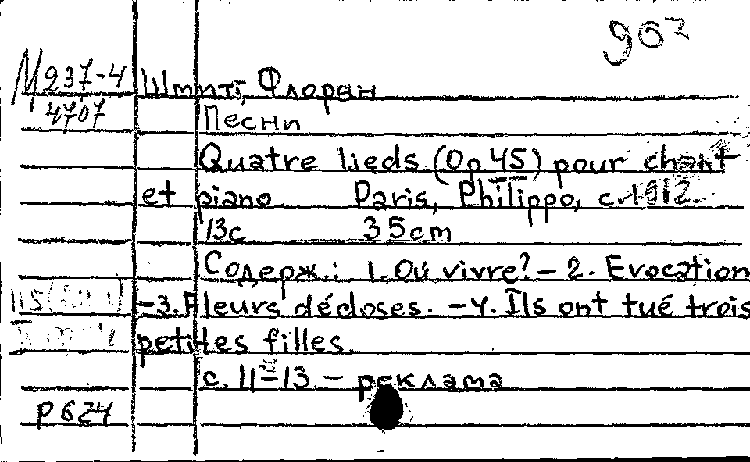 907
М 237-4
4707
Шмитт, Флоран
Песни
Quatre lieds (Op 45) pour chant
et piano Paris, Philippo, c. 1912.
13с 35cm
Содерж.: 1. Où vivre? – 2. Evocation
–3. Fleurs décloses. – 4. Ils ont tué trois
petites filles.
с. 11–13 – реклама
Р 624